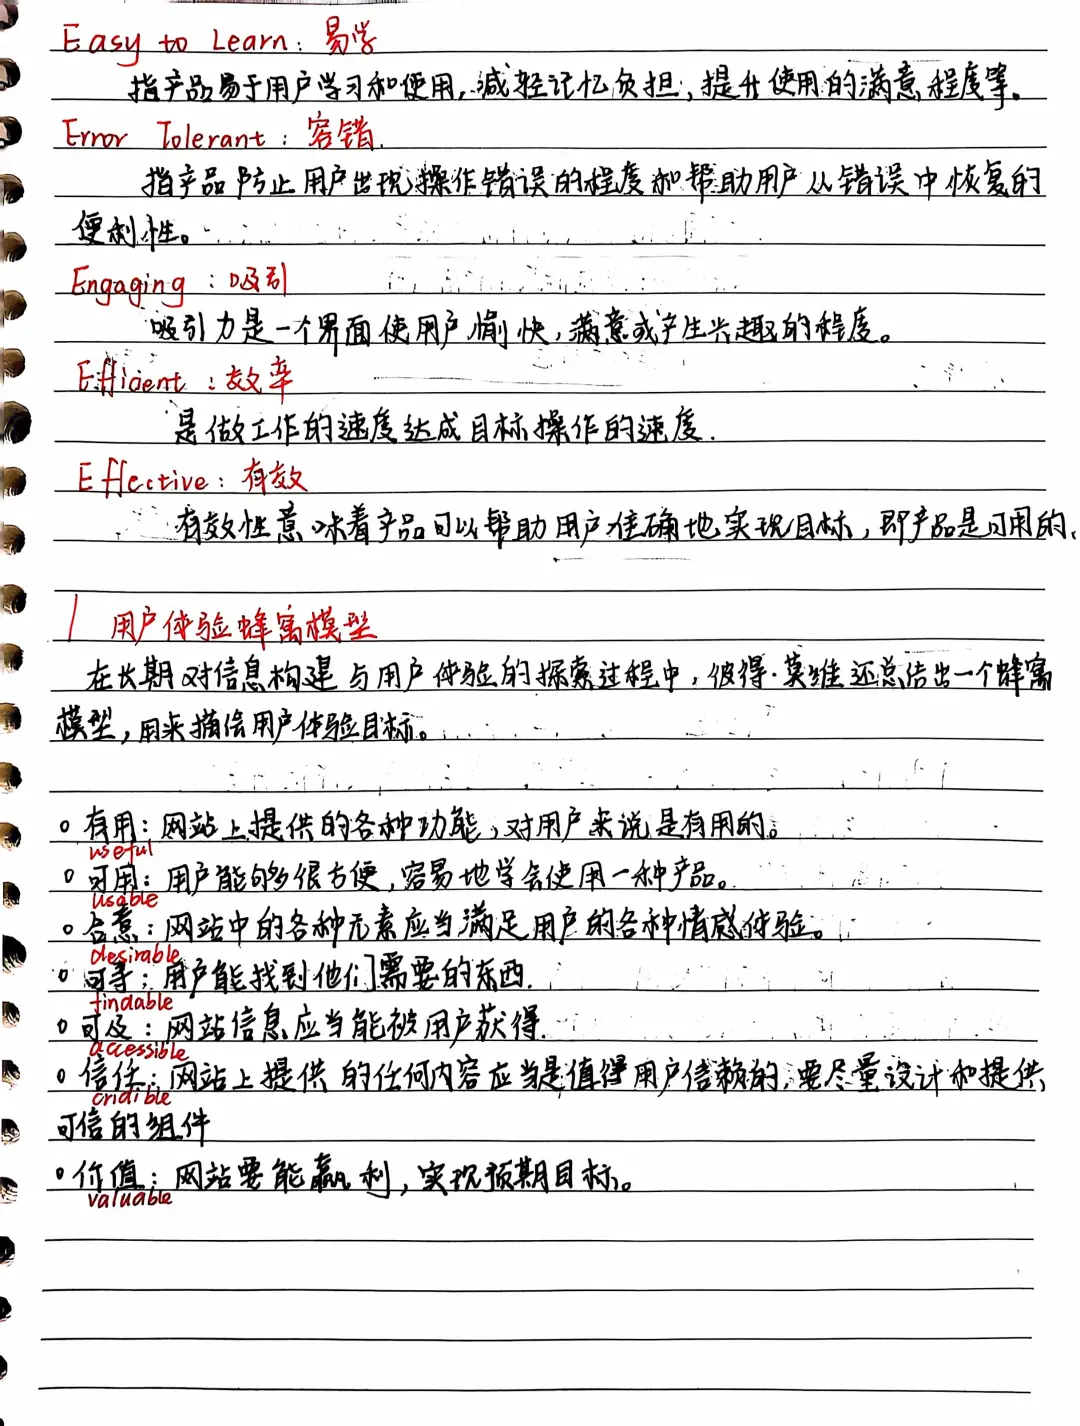 Easy to Learn: 易学
指产品易于用户学习和使用,减轻记忆负担,提升使用的满意程度等。
Error Tolerant: 容错.
指产品防止用户出现操作错误的程度和帮助用户从错误中恢复的
便利性。
Engaging: 吸引
吸引力是一个界面使用户愉快,满意或产生兴趣的程度。
Efficient: 效率
是做工作的速度达成目标操作的速度.
Effective: 有效
有效性意味着产品可以帮助用户准确地实现目标,即产品是可用的.
用户体验蜂窝模型
在长期对信息构建与用户体验的探索过程中,彼得·莫维还总结出一个蜂窝
模型,用来描绘用户体验目标。
有用:网站上提供的各种功能,对用户来说是有用的。
useful
可用:用户能够很方便,容易地学会使用一种产品。
usable
合意:网站中的各种元素应当满足用户的各种情感体验。
desirable
可寻:用户能找到他们需要的东西.
findable
可及:网站信息应当能被用户获得.
accessible
信任:网站上提供的任何内容应当是值得用户信赖的,要尽量设计和提供
cridible
可信的组件
价值:网站要能赢利,实现预期目标。
valuable